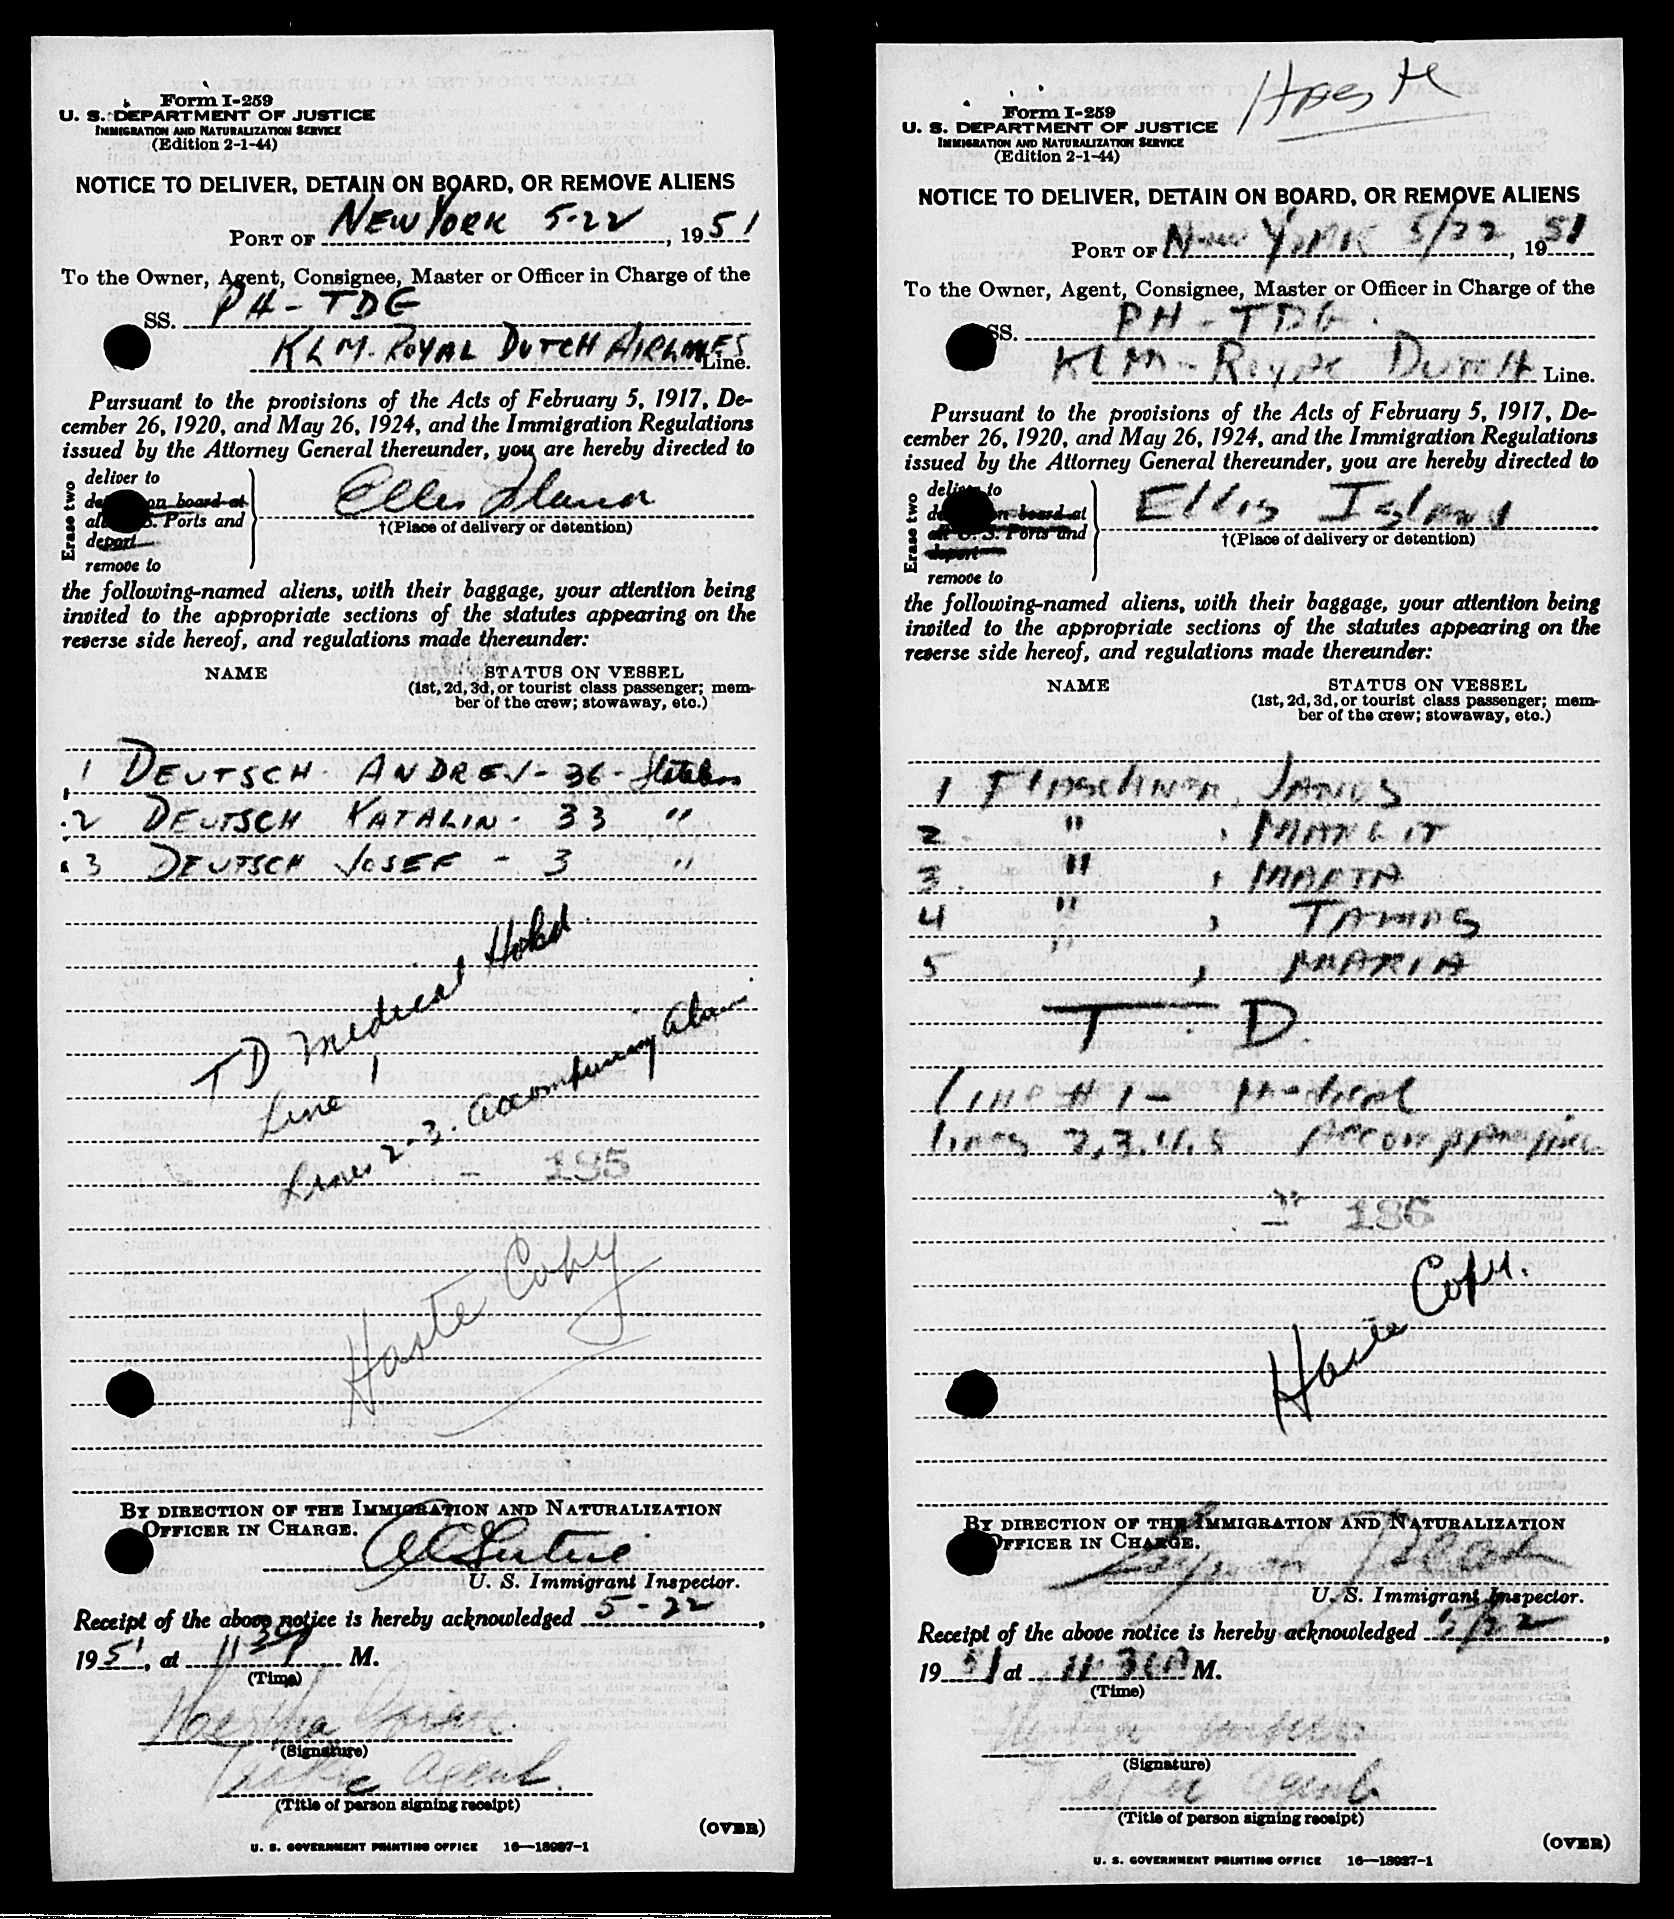 Form I-259
U. S. DEPARTMENT OF JUSTICE
IMMIGRATION AND NATURALIZATION SERVICE
(Edition 2-1-44)
NOTICE TO DELIVER, DETAIN ON BOARD, OR REMOVE ALIENS
PORT OF NEW YORK 5-22, 1951
To the Owner, Agent, Consignee, Master or Officer in Charge of the
SS. PH-TDG
KLM-ROYAL DUTCH AIRLINES Line.
Pursuant to the provisions of the Acts of February 5, 1917, De-
cember 26, 1920, and May 26, 1924, and the Immigration Regulations
issued by the Attorney General thereunder, you are hereby directed to
Erase two
deliver to
on board at
S. Ports and
deport
remove to
Ellis Island
†(Place of delivery or detention)
the following-named aliens, with their baggage, your attention being
invited to the appropriate sections of the statutes appearing on the
reverse side hereof, and regulations made thereunder:
NAME STATUS ON VESSEL
(1st, 2d, 3d, or tourist class passenger; mem-
ber of the crew; stowaway, etc.)
1 DEUTSCH ANDREJ - 36 - Stateless
2 DEUTSCH KATALIN - 33 "
3 DEUTSCH JOSEF - 3 "
TD Medical Hold
Line 1
Lines 2-3. Accompanying Alien
- 195
Haste Copy
BY DIRECTION OF THE IMMIGRATION AND NATURALIZATION
OFFICER IN CHARGE.
U. S. Immigrant Inspector.
Receipt of the above notice is hereby acknowledged 5-22,
1951, at 1130 M.
(Time)
(Signature)
Traffic Agent.
(Title of person signing receipt)
(OVER)
U. S. GOVERNMENT PRINTING OFFICE 16—13987-1
Form I-259
U. S. DEPARTMENT OF JUSTICE
IMMIGRATION AND NATURALIZATION SERVICE
(Edition 2-1-44)
NOTICE TO DELIVER, DETAIN ON BOARD, OR REMOVE ALIENS
PORT OF New YORK 5/22, 1951
To the Owner, Agent, Consignee, Master or Officer in Charge of the
SS. PH-TDG.
KLM-Royal DUTCH Line.
Pursuant to the provisions of the Acts of February 5, 1917, De-
cember 26, 1920, and May 26, 1924, and the Immigration Regulations
issued by the Attorney General thereunder, you are hereby directed to
Erase two
deliver to
on board at
all U. S. Ports and
deport
remove to
Ellis Island
†(Place of delivery or detention)
the following-named aliens, with their baggage, your attention being
invited to the appropriate sections of the statutes appearing on the
reverse side hereof, and regulations made thereunder:
NAME STATUS ON VESSEL
(1st, 2d, 3d, or tourist class passenger; mem-
ber of the crew; stowaway, etc.)
1 JANOS
2 " , MARGIT
3 " , MARTA
4 " , TAMAS
5 " , MARIA
T. D.
line #1 - Medical
lines 2,3,4,5 Accompanying
- 196
Haste Copy.
BY DIRECTION OF THE IMMIGRATION AND NATURALIZATION
OFFICER IN CHARGE.
U. S. Immigrant Inspector.
Receipt of the above notice is hereby acknowledged 5/22,
1951 at 11 30A M.
(Time)
(Signature)
Traffic Agent
(Title of person signing receipt)
(OVER)
U. S. GOVERNMENT PRINTING OFFICE 16—13987-1